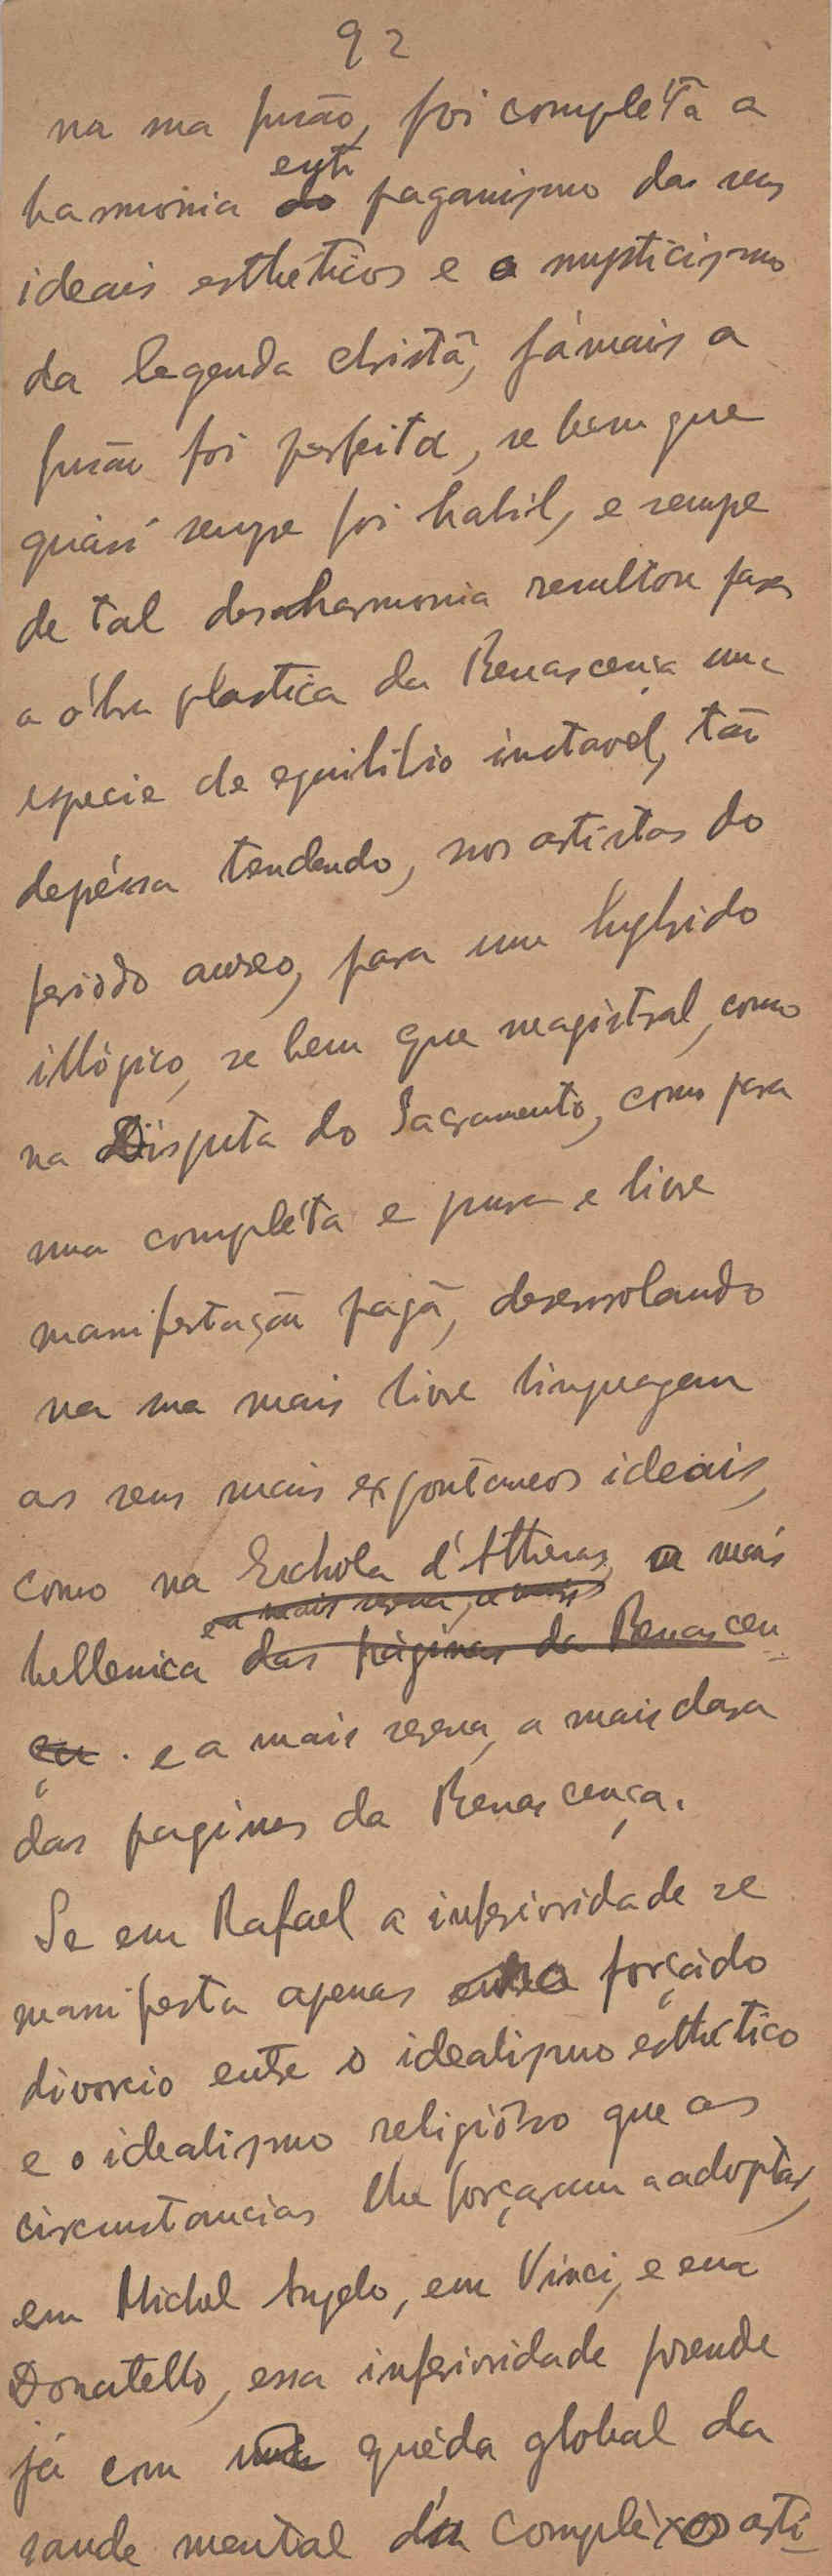 92
na sua fusão, foi compléta a
harmonia entre do paganismo dos seus
ideais estheticos e o mysticismo
da legenda christã, jámais a
fusão foi perfeita, se bem que
quási sempre foi habil, e sempre
de tal desharmonia resultou para
a óbra plastica da Renascença uma
especie de equilibrio instavel, tão
depéssa tendendo, nos artistas do
periodo aureo, para um hybrido
illógico, se bem que magistral, como
na Disputa do Sacramento, como para
uma compléta e pura e livre
manifestação pagã, desenrolando
na sua mais livre linguagem
os seus mais expontaneos ideais,
como na Eschola d'Athenas, a mais
e a mais serena, a mais
hellenica das páginas da Renascen-
ça . e a mais serena, a mais clara
das paginas da Renascença.
Se em Rafael a inferioridade se
manifesta apenas forçádo
divorcio entre o idealismo esthético
e o idealismo religiôso que as
circunstancias lhe forçaram a adoptar,
em Michel Angelo, em Vinci, e em
Donatello, essa inferioridade prende
já com uma quéda global da
saude mental da compléxo arti-